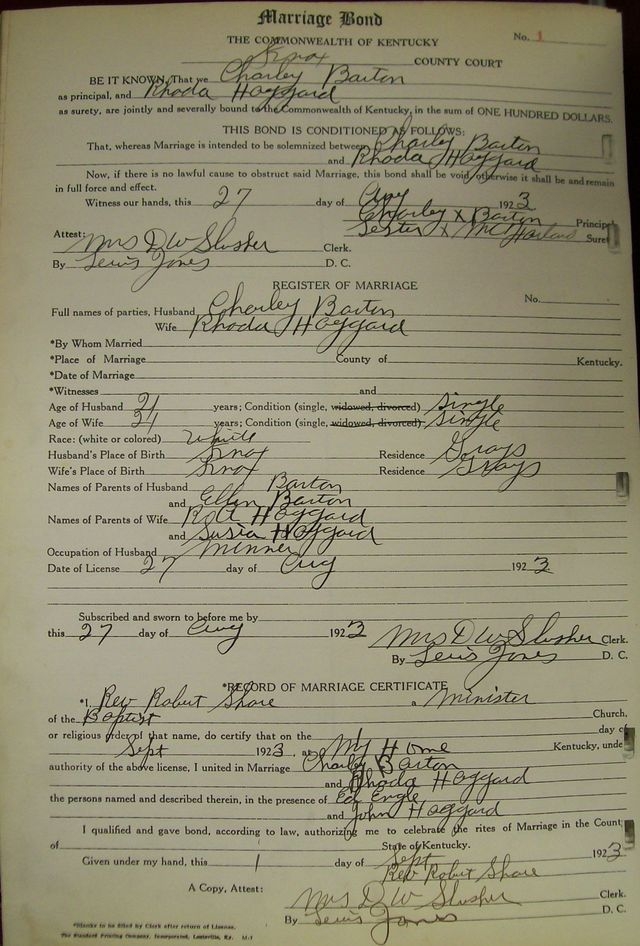 Marriage Bond
No. 1
THE COMMONWEALTH OF KENTUCKY
Knox COUNTY COURT
BE IT KNOWN, That we Charley Barton
as principal, and Rhoda Haggard
as surety, are jointly and severally bound to the Commonwealth of Kentucky, in the sum of ONE HUNDRED DOLLARS.
THIS BOND IS CONDITIONED AS FOLLOWS:
That, whereas Marriage is intended to be solemnized between Charley Barton
and Rhoda Haggard
Now, if there is no lawful cause to obstruct said Marriage, this bond shall be void, otherwise it shall be and remain
in full force and effect.
Witness our hands, this 27 day of Aug 1923
Charley X Barton Principal
Lester X McFarland Suret
Attest: Mrs D W Slusher Clerk.
By Lewis Jones D. C.
REGISTER OF MARRIAGE
No.
Full names of parties, Husband Charley Barton
Wife Rhoda Haggard
*By Whom Married
*Place of Marriage County of Kentucky.
*Date of Marriage
*Witnesses and
Age of Husband 21 years; Condition (single, widowed, divorced) Single
Age of Wife 21 years; Condition (single, widowed, divorced) Single
Race: (white or colored) White
Husband's Place of Birth Knox Residence Grays
Wife's Place of Birth Knox Residence Grays
Names of Parents of Husband Barton
and Ellen Barton
Names of Parents of Wife Robt Haggard
and Susia Haggard
Occupation of Husband Minner
Date of License 27 day of Aug 1923
Subscribed and sworn to before me by
this 27 day of Aug 1923 Mrs D W Slusher Clerk.
By Lewis Jones D. C.
*RECORD OF MARRIAGE CERTIFICATE
*I, Rev Robert Shore a Minister
of the Baptist Church,
or religious order of that name, do certify that on the 1 day of
Sept 1923, at My Home Kentucky, unde
authority of the above license, I united in Marriage Charley Barton
and Rhoda Haggard
the persons named and described therein, in the presence of Ed Engle
and John Haggard
I qualified and gave bond, according to law, authorizing me to celebrate the rites of Marriage in the Count
of State of Kentucky.
Given under my hand, this 1 day of Sept 1923
Rev Robert Shore
A Copy, Attest: Mrs D W Slusher Clerk.
By Lewis Jones D. C.
*Blanks to be filed by Clerk after return of License.
The Standard Printing Company, Incorporated, Louisville, Ky. M-1